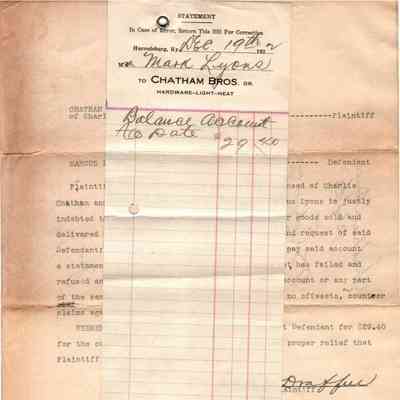 STATEMENT
In Case of Error, Return This Bill For Correction
Harrodsburg, Ky. Dec 19th 1922
M Mark Lyons
TO CHATHAM BROS. DR.
HARDWARE-LIGHT-HEAT
Balance Account
To Date $29 40
CHATHAM
of Charli ---Plaintiff
MARCUS --- Defendant
Plaintif sed of Charlie
Chatham an us Lyons is justly
indebted t r goods sold and
delivered nd request of said
Defendant pay said account
a statemen t has failed and
refused an ccount or any part
of the sam no offsets, counter
claims aga
WHEREF t Defendant for $29.40
for the co proper relief that
Plaintiff
aintiff